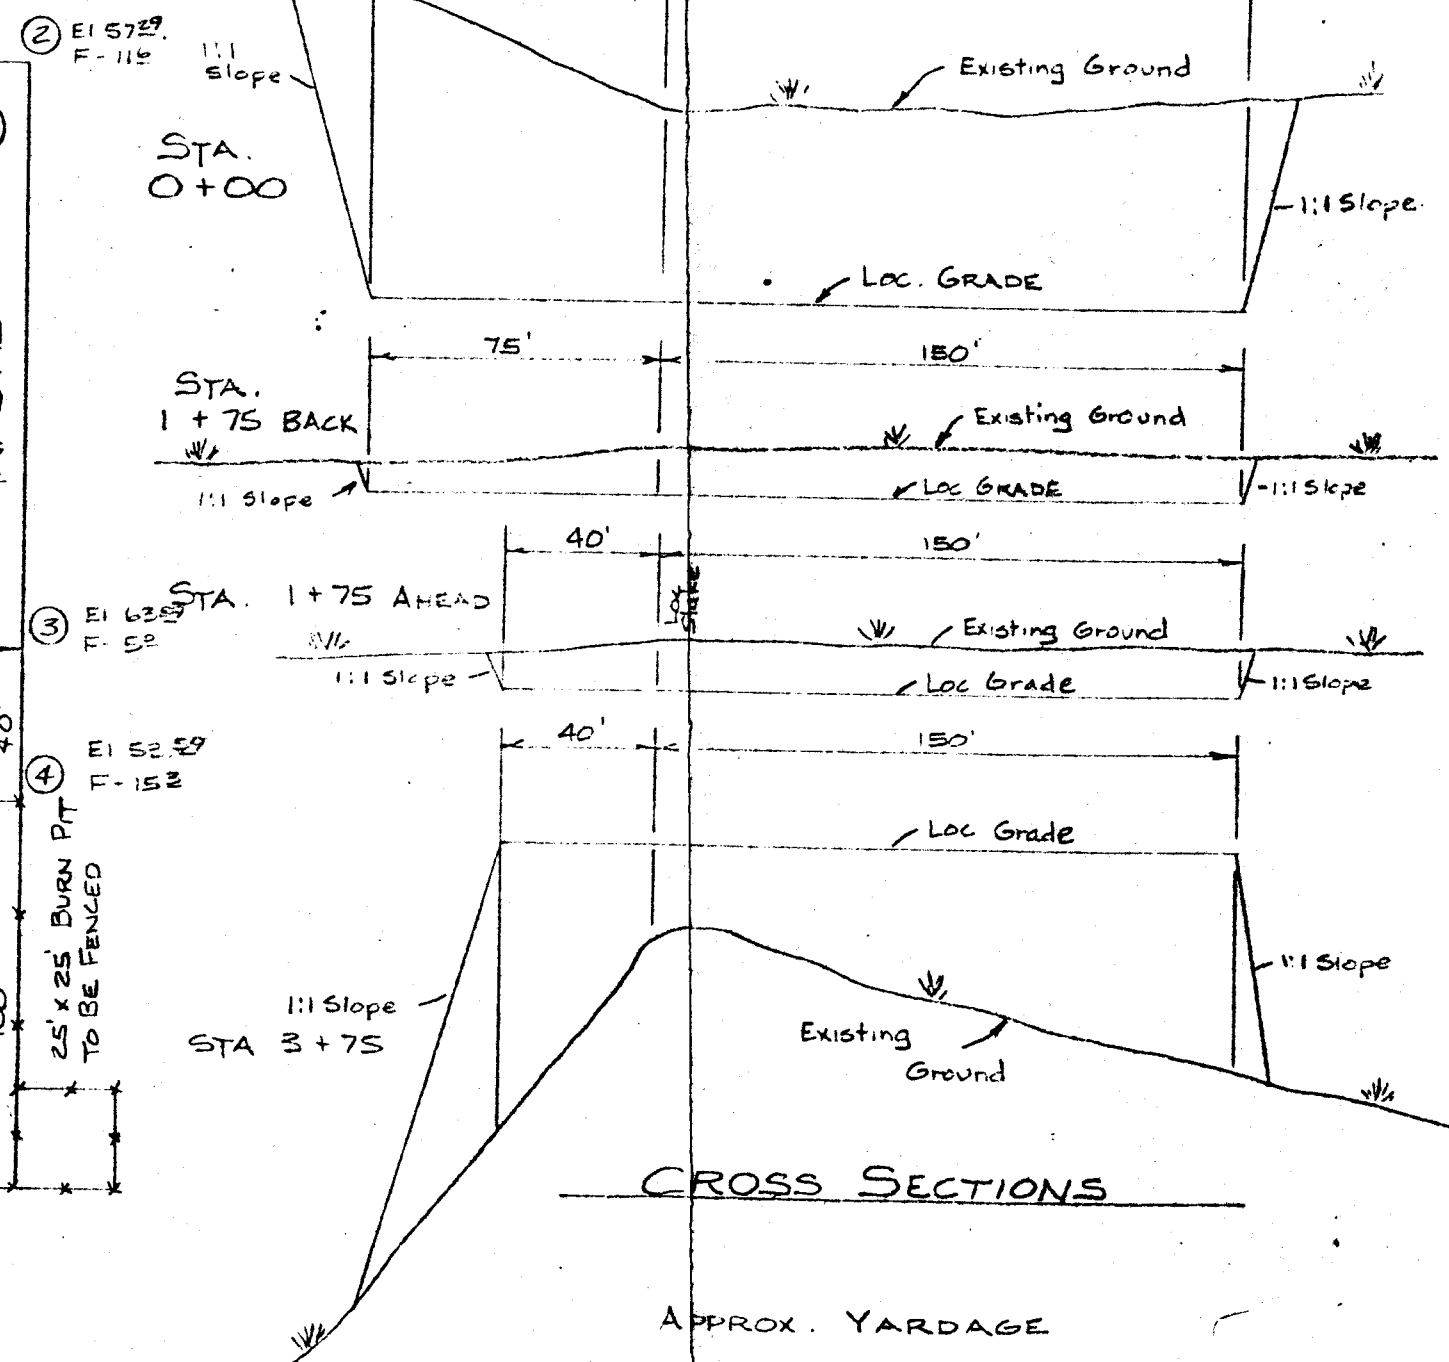 2 El 57.29.
F-11.6
1:1
Slope
Existing Ground
STA.
0+00
1:1 Slope.
LOC. GRADE
75'
150'
STA.
1+75 BACK
Existing Ground
1:1 Slope
LOC GRADE
1:1 Slope
40'
150'
STA. 1+75 AHEAD
Loc
Stake
3 El 63
F-5.0
Existing Ground
1:1 Slope
Loc Grade
1:1 Slope
40'
40'
150'
4 El 52.59
F-15.3
Loc Grade
25' x 25' BURN PIT
TO BE FENCED
1:1 Slope
1:1 Slope
STA 3+75
Existing
Ground
CROSS SECTIONS
APPROX. YARDAGE